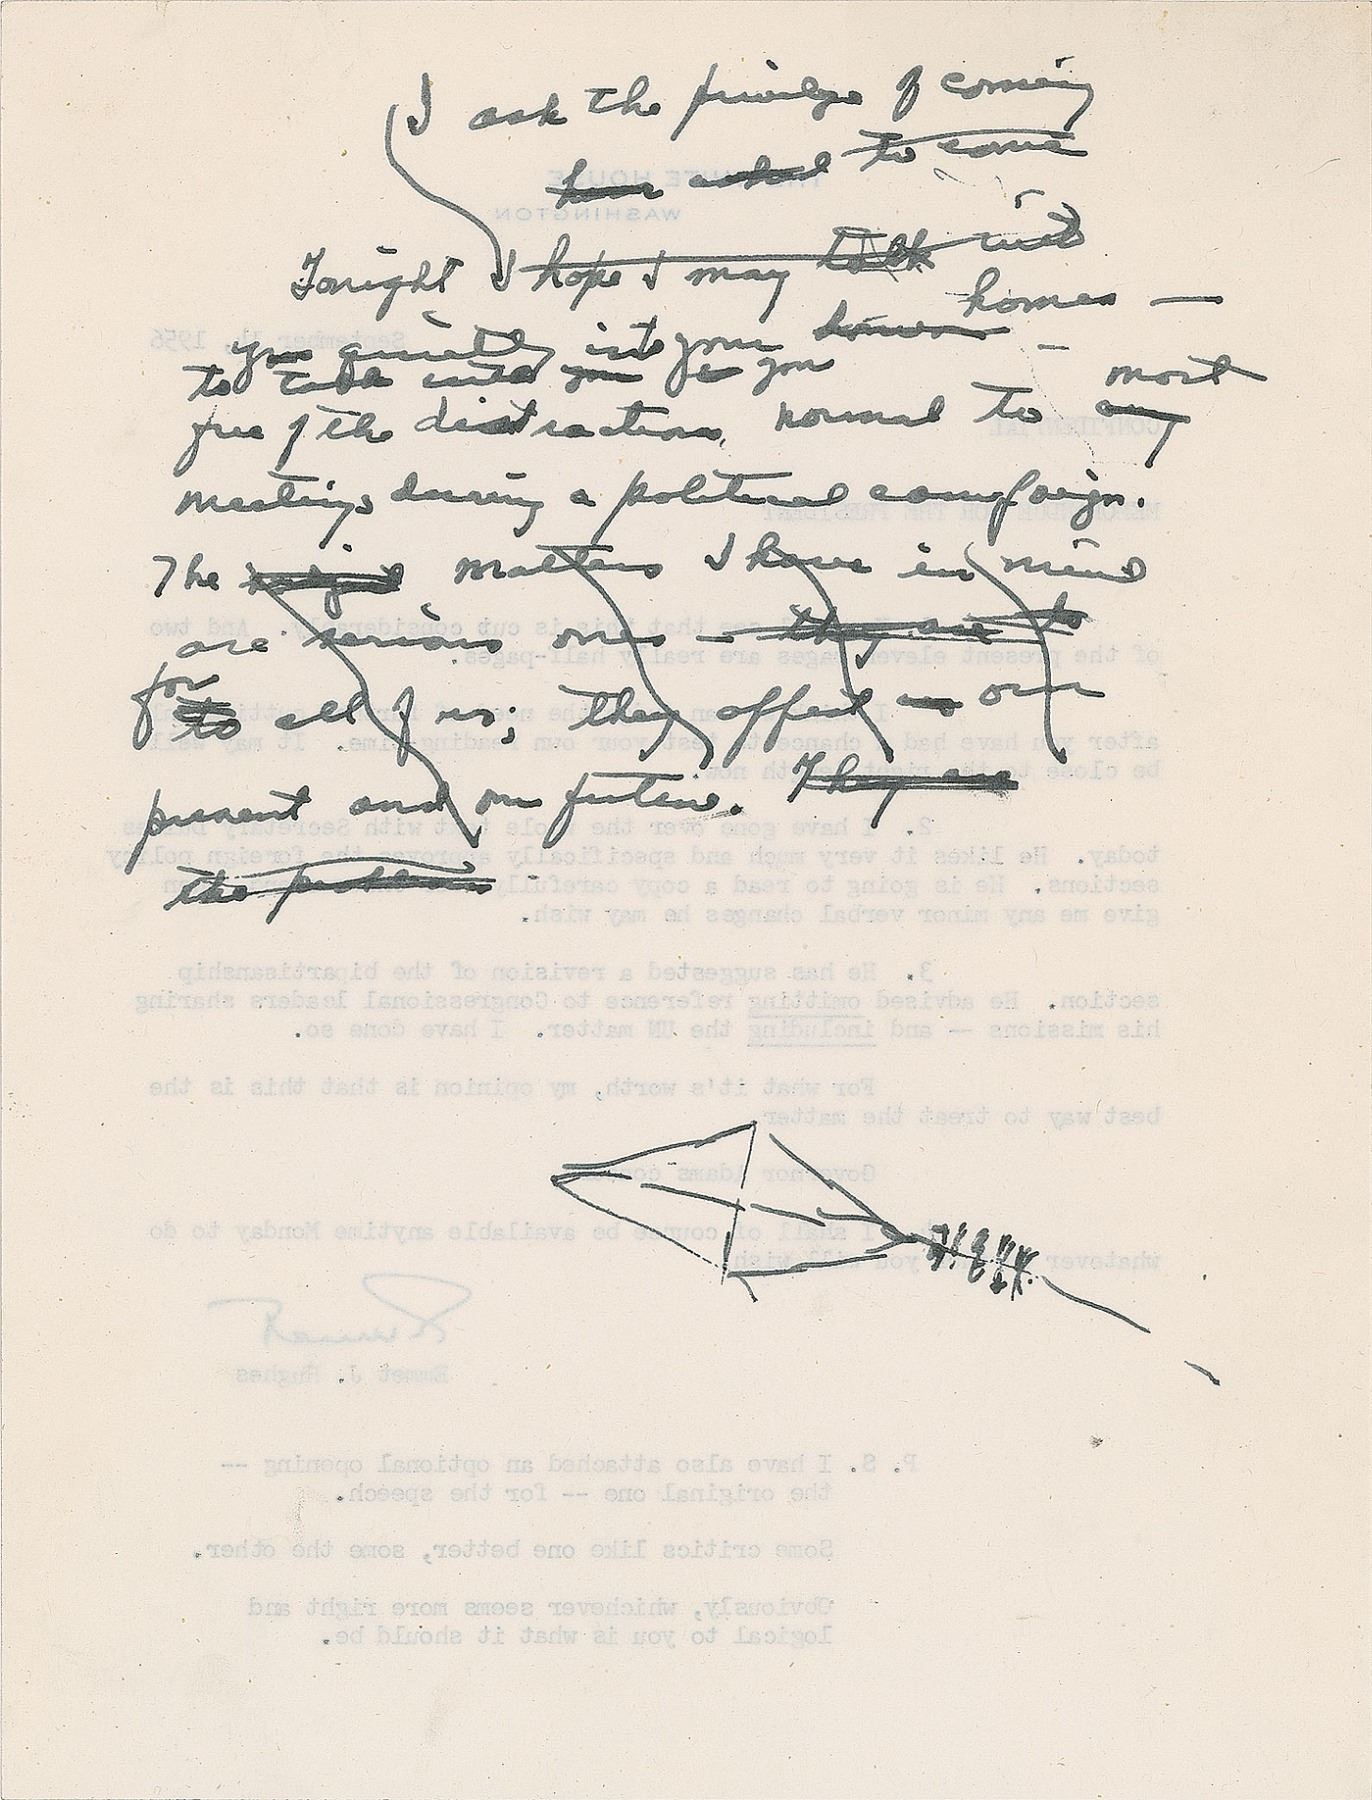 I ask the privilege of coming
have asked to come
Tonight I hope I may talk with
homes —
you quietly into your homes
to talk with you
free of the distractions, normal to any most
meetings during a political campaign.
The matters I have in mind
are serious ones — they are to
for
to all of us; they affect our
present and our future. They are
the problems
THE WHITE HOUSE
WASHINGTON
September 14, 1956
CONFIDENTIAL
MEMORANDUM FOR THE PRESIDENT
see that this is cut considerably. And two
of the present eleven pages are really half-pages.
after you have had a chance to test your own reading-time. It may well
be close to the right length now.
2. I have gone over the whole text with Secretary Dulles
today. He likes it very much and specifically approves the foreign policy
sections. He is going to read a copy carefully
give me any minor verbal changes he may wish.
3. He has suggested a revision of the bipartisanship
section. He advised omitting reference to Congressional leaders sharing
his missions -- and including the UN matter. I have done so.
For what it's worth, my opinion is that this is the
best way to treat the matter.
Governor Adams
I shall of course be available anytime Monday to do
whatever you will wish.
Emmet J. Hughes
P. S. I have also attached an optional opening --
the original one -- for the speech.
Some critics like one better, some the other.
Obviously, whichever seems more right and
logical to you is what it should be.